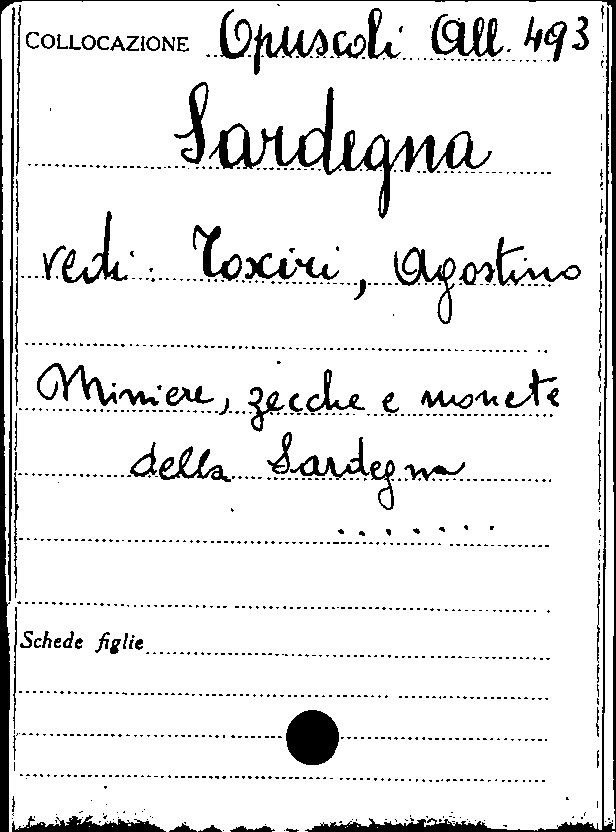 COLLOCAZIONE Opuscoli All. 493
Sardegna
vedi: Toxiri, Agostino
Miniere, zecche e monete
della Sardegna
.......
Schede figlie